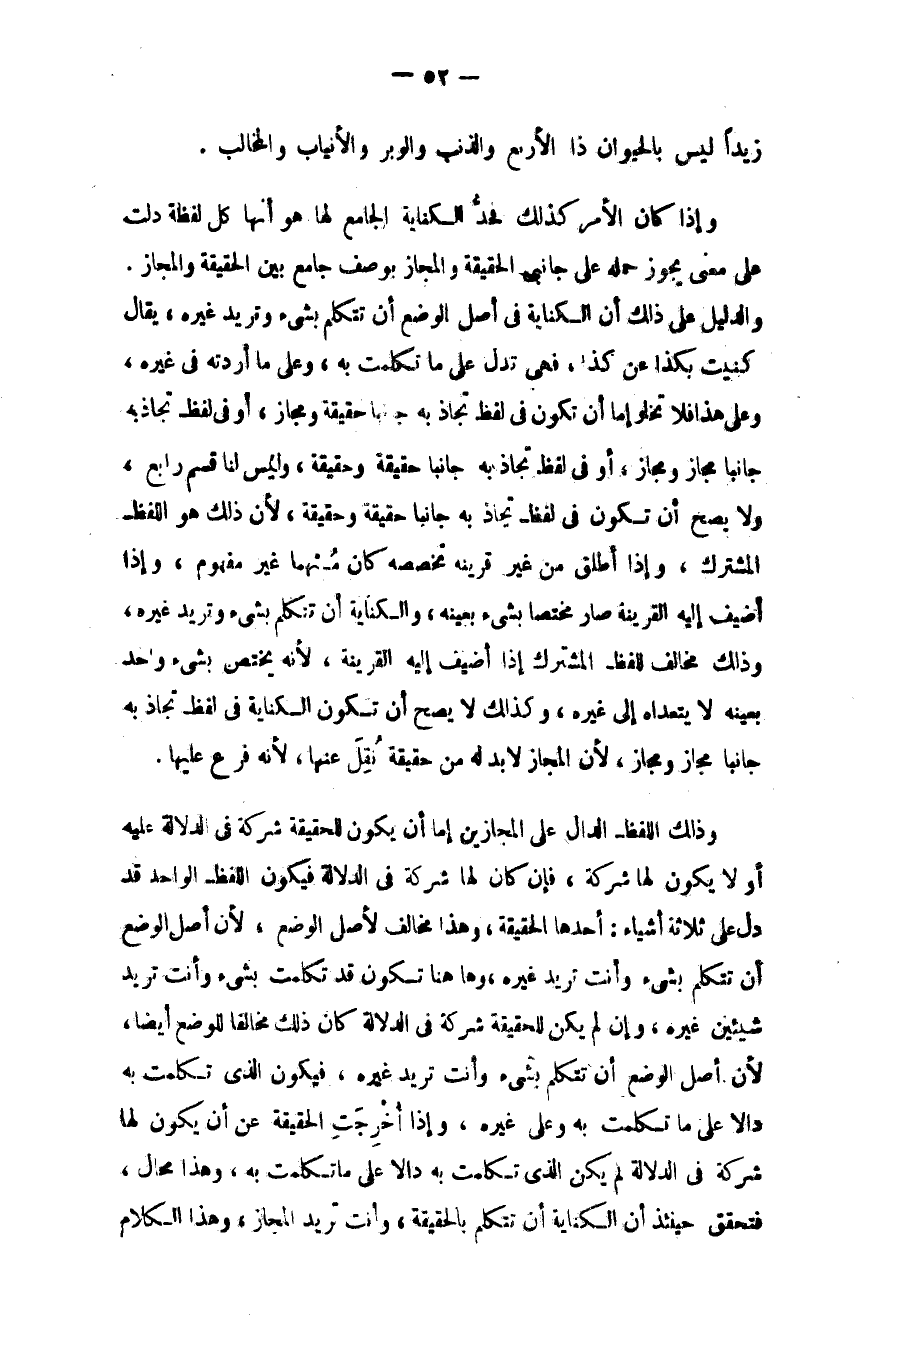 — ٥٢ —
زيداً ليس بالحيوان ذا الأربع والذنب والوبر والأنياب والمخالب .
وإذا كان الأمر كذلك فحدُّ الكناية الجامع لها هو أنها كل لفظة دلت
على معنى يجوز حمله على جانبي الحقيقة والمجاز بوصف جامع بين الحقيقة والمجاز .
والدليل على ذلك أن الكناية فى أصل الوضع أن تتكلم بشىء وتريد غيره ، يقال
كنيت بكذا عن كذا ، فهى تدل على ما تكلمت به ، وعلى ما أردته فى غيره ،
وعلى هذا فلا تخلو إما أن تكون فى لفظ تجاذ به جانبا حقيقة ومجاز ، أو فى لفظ تجاذبه
جانبا مجاز ومجاز ، أو فى لفظ تجاذبه جانبا حقيقة وحقيقة ، وليس لنا قسم رابع ،
ولا يصح أن تكون فى لفظ تجاذ به جانبا حقيقة وحقيقة ، لأن ذلك هو اللفظ
المشترك ، وإذا أطلق من غير قرينه تخصصه كان مُبْهما غير مفهوم ، وإذا
أضيف إليه القرينة صار مختصا بشىء بعينه ، والكناية أن تتكلم بشىء وتريد غيره ،
وذلك مخالف للفظ المشترك إذا أضيف إليه القرينة ، لأنه يختص بشىء واحد
بعينه لا يتعداه إلى غيره ، وكذلك لا يصح أن تكون الكناية فى لفظ تجاذ به
جانبا مجاز ومجاز ، لأن المجاز لابد له من حقيقة نُقِلَ عنها ، لأنه فرع عليها .
وذلك اللفظ الدال على المجازين إما أن يكون للحقيقة شركة فى الدلالة عليه
أو لا يكون لها شركة ، فإن كان لها شركة فى الدلالة فيكون اللفظ الواحد قد
دل على ثلاثة أشياء : أحدها الحقيقة ، وهذا مخالف لأصل الوضع ، لأن أصل الوضع
أن تتكلم بشىء وأنت تريد غيره ، وها هنا تكون قد تكلمت بشىء وأنت تريد
شيئين غيره ، وإن لم يكن للحقيقة شركة فى الدلالة كان ذلك مخالفا للوضع أيضا ،
لأن أصل الوضع أن تتكلم بشىء وأنت تريد غيره ، فيكون الذى تكلمت به
دالا على ما تكلمت به وعلى غيره ، وإذا أُخْرِجَتِ الحقيقة عن أن يكون لها
شركة فى الدلالة لم يكن الذى تكلمت به دالا على ماتكلمت به ، وهذا محال ،
فتحقق حينئذ أن الكناية أن تتكلم بالحقيقة ، وأنت تريد المجاز ، وهذا الكلام